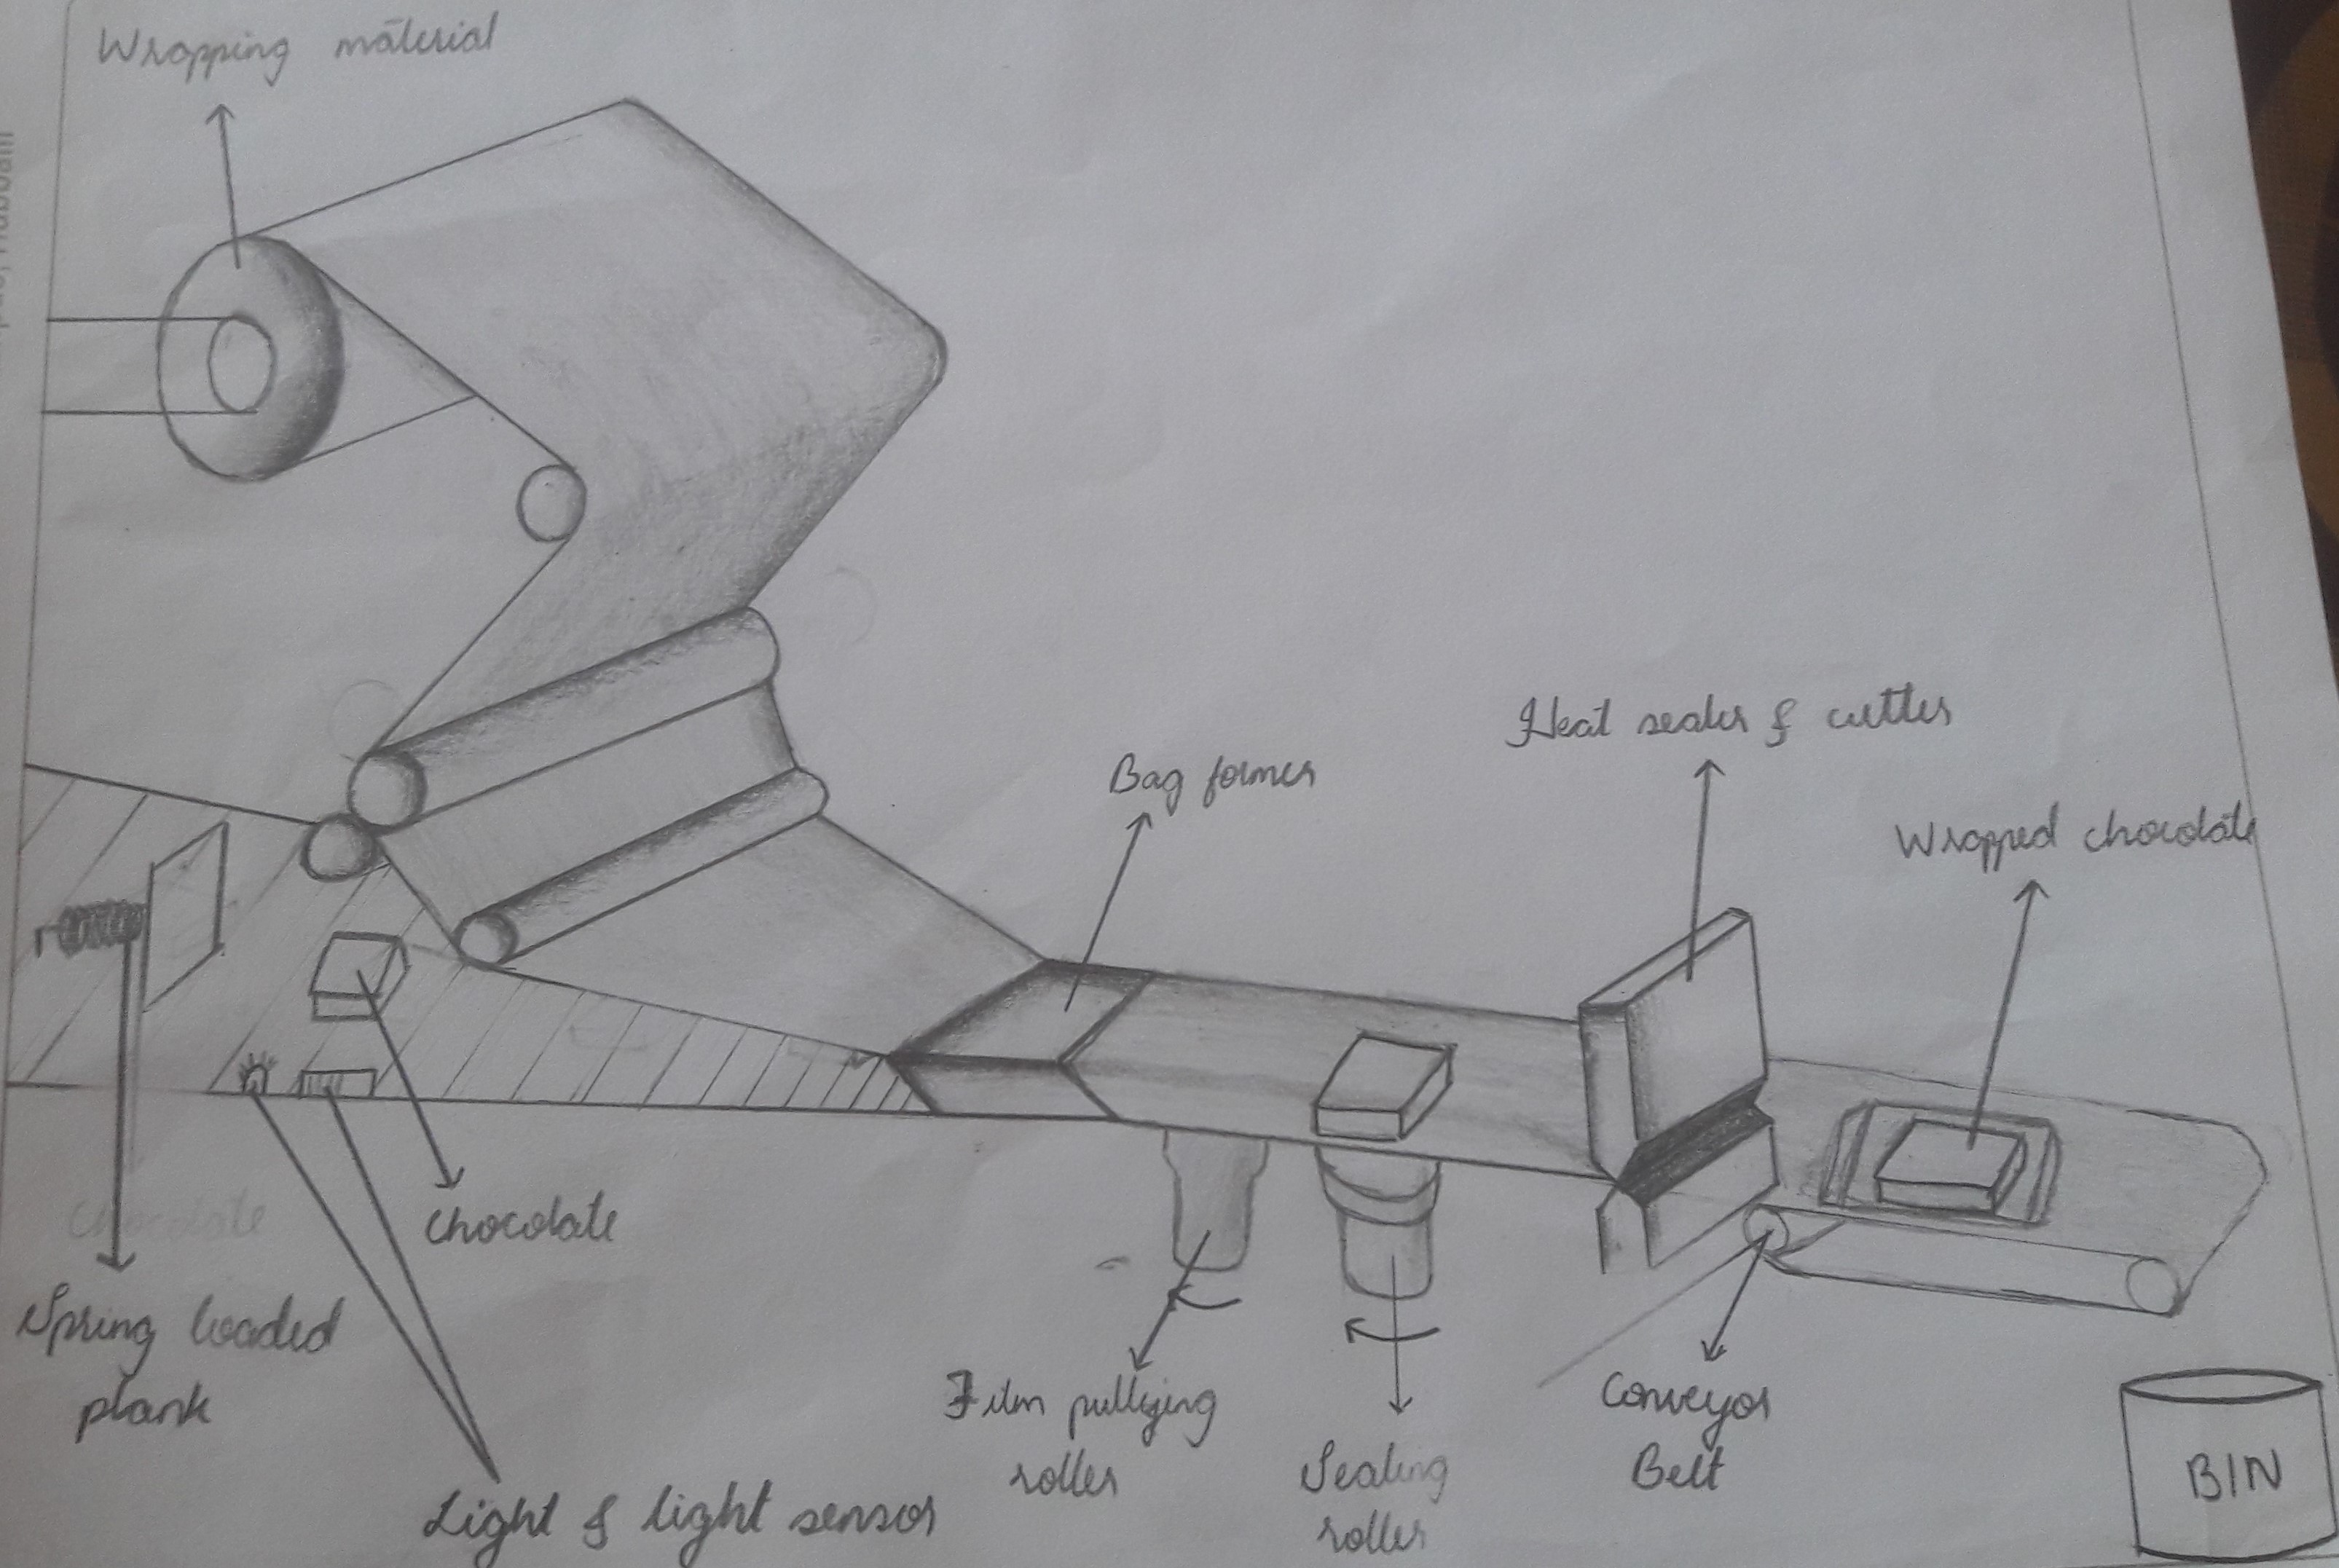 Wrapping material
Heat sealer & cutter
Bag former
Wrapped chocolate
chocolate
chocolate
Spring loaded
plank
Light & light sensor
Film pullying
roller
Sealing
roller
Conveyor
Belt
BIN